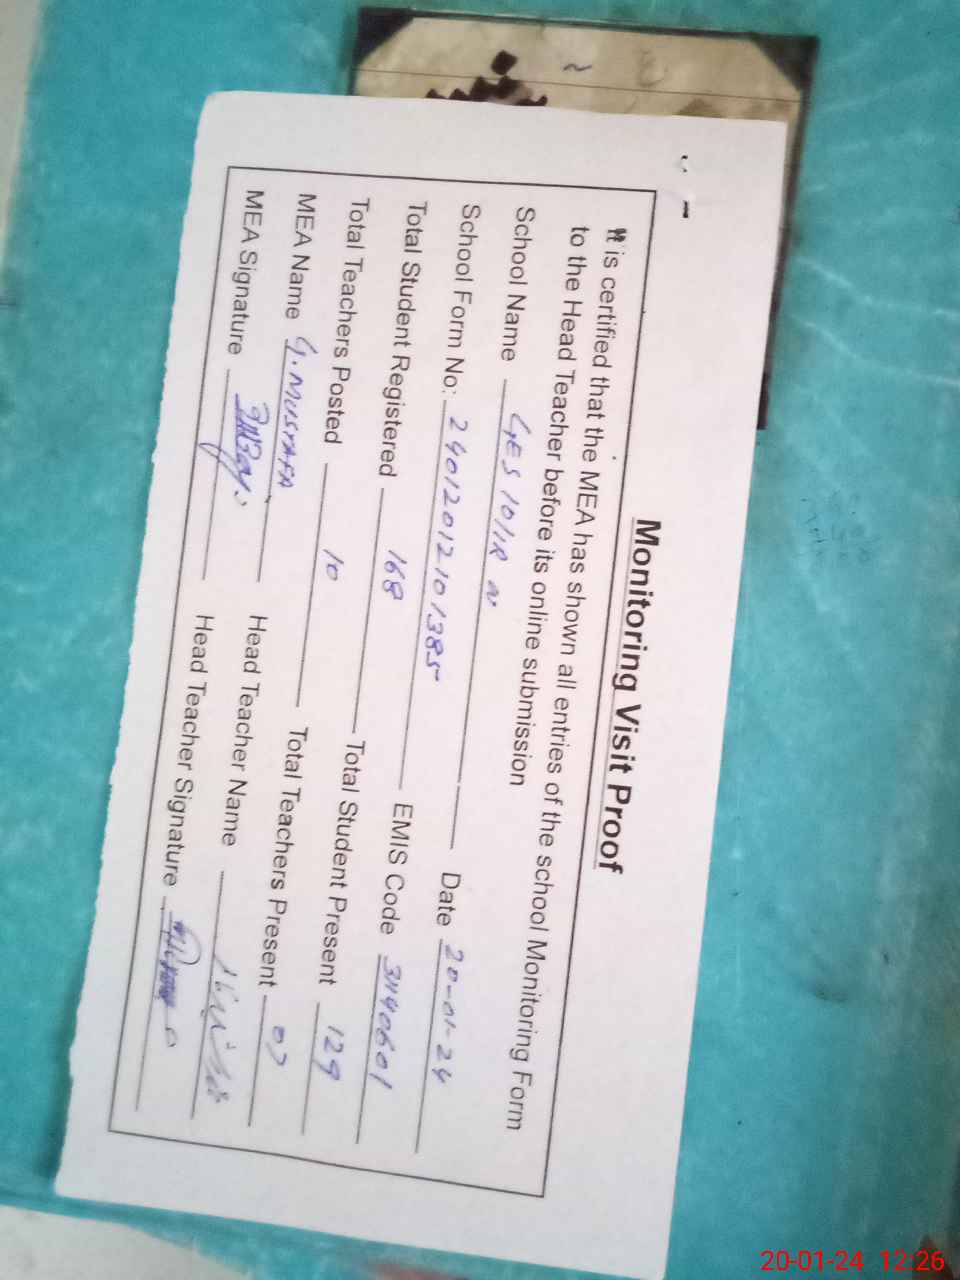 Monitoring Visit Proof
It is certified that the MEA has shown all entries of the school Monitoring Form
to the Head Teacher before its online submission
School Name GES 101R N
School Form No: 2401201210 1385 Date 20-01-24
Total Student Registered 168 EMIS Code 31140601
Total Teachers Posted 10 Total Student Present 129
MEA Name G. MUSTAFA Total Teachers Present 07
MEA Signature Head Teacher Name
Head Teacher Signature
20-01-24 12:26